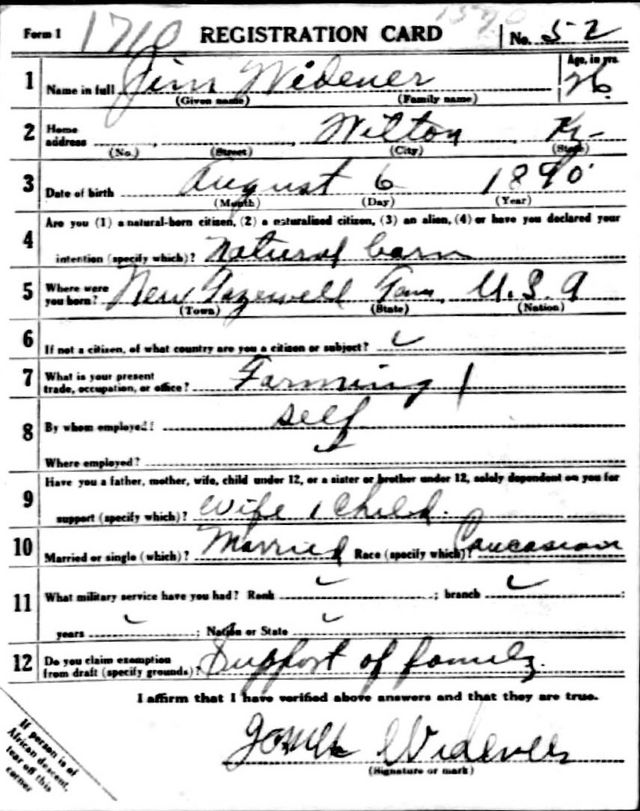 Form 1 1710 REGISTRATION CARD No. 52
1 Name in full Jim Widener Age, in yrs. 26
(Given name) (Family name)
2 Home address Wilton Ky-
(No.) (Street) (City) (State)
3 Date of birth August 6 1890
(Month) (Day) (Year)
4 Are you (1) a natural-born citizen, (2) a naturalized citizen, (3) an alien, (4) or have you declared your
intention (specify which)? natural born
5 Where were you born? New Tazewell Tenn, U.S.A
(Town) (State) (Nation)
6 If not a citizen, of what country are you a citizen or subject?
7 What is your present trade, occupation, or office? Farming
8 By whom employed? self
Where employed?
9 Have you a father, mother, wife, child under 12, or a sister or brother under 12, solely dependent on you for
support (specify which)? Wife 1 Child.
10 Married or single (which)? Married Race (specify which)? Caucasian
11 What military service have you had? Rank ; branch ;
years ; Nation or State
12 Do you claim exemption from draft (specify grounds)? Support of family.
I affirm that I have verified above answers and that they are true.
Widener
(Signature or mark)
If person is of
African descent,
tear off this
corner